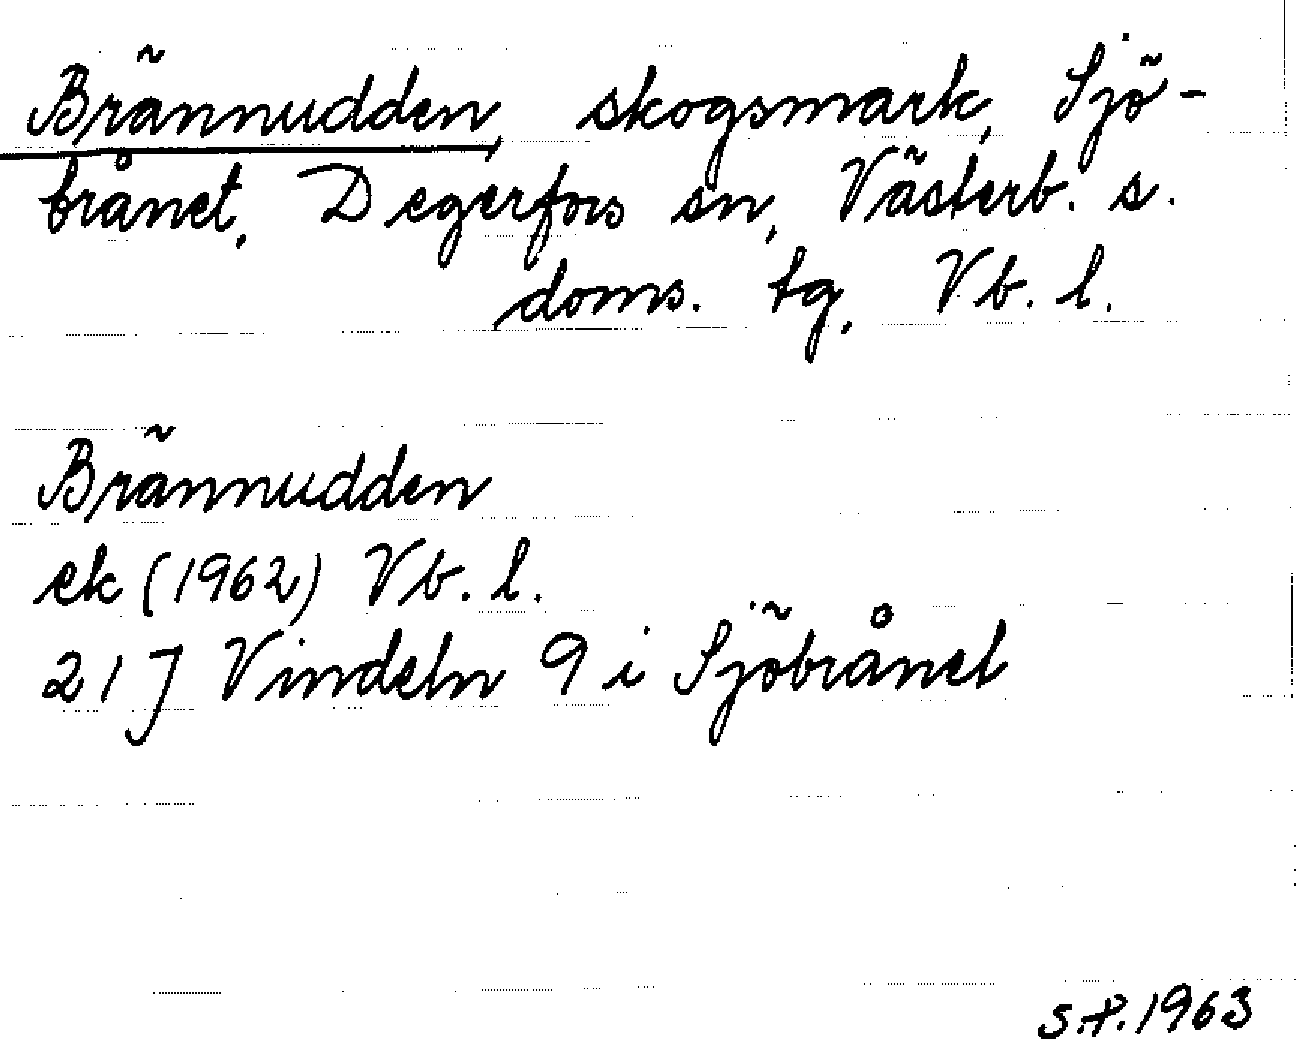 Brännudden, skogsmark, Sjö-
brånet, Degerfors sn, Västerb. s.
doms. tg, Vb. l.
Brännudden
ek (1962) Vb. l.
21 J Vindeln 9 i Sjöbrånet
S.P. 1963